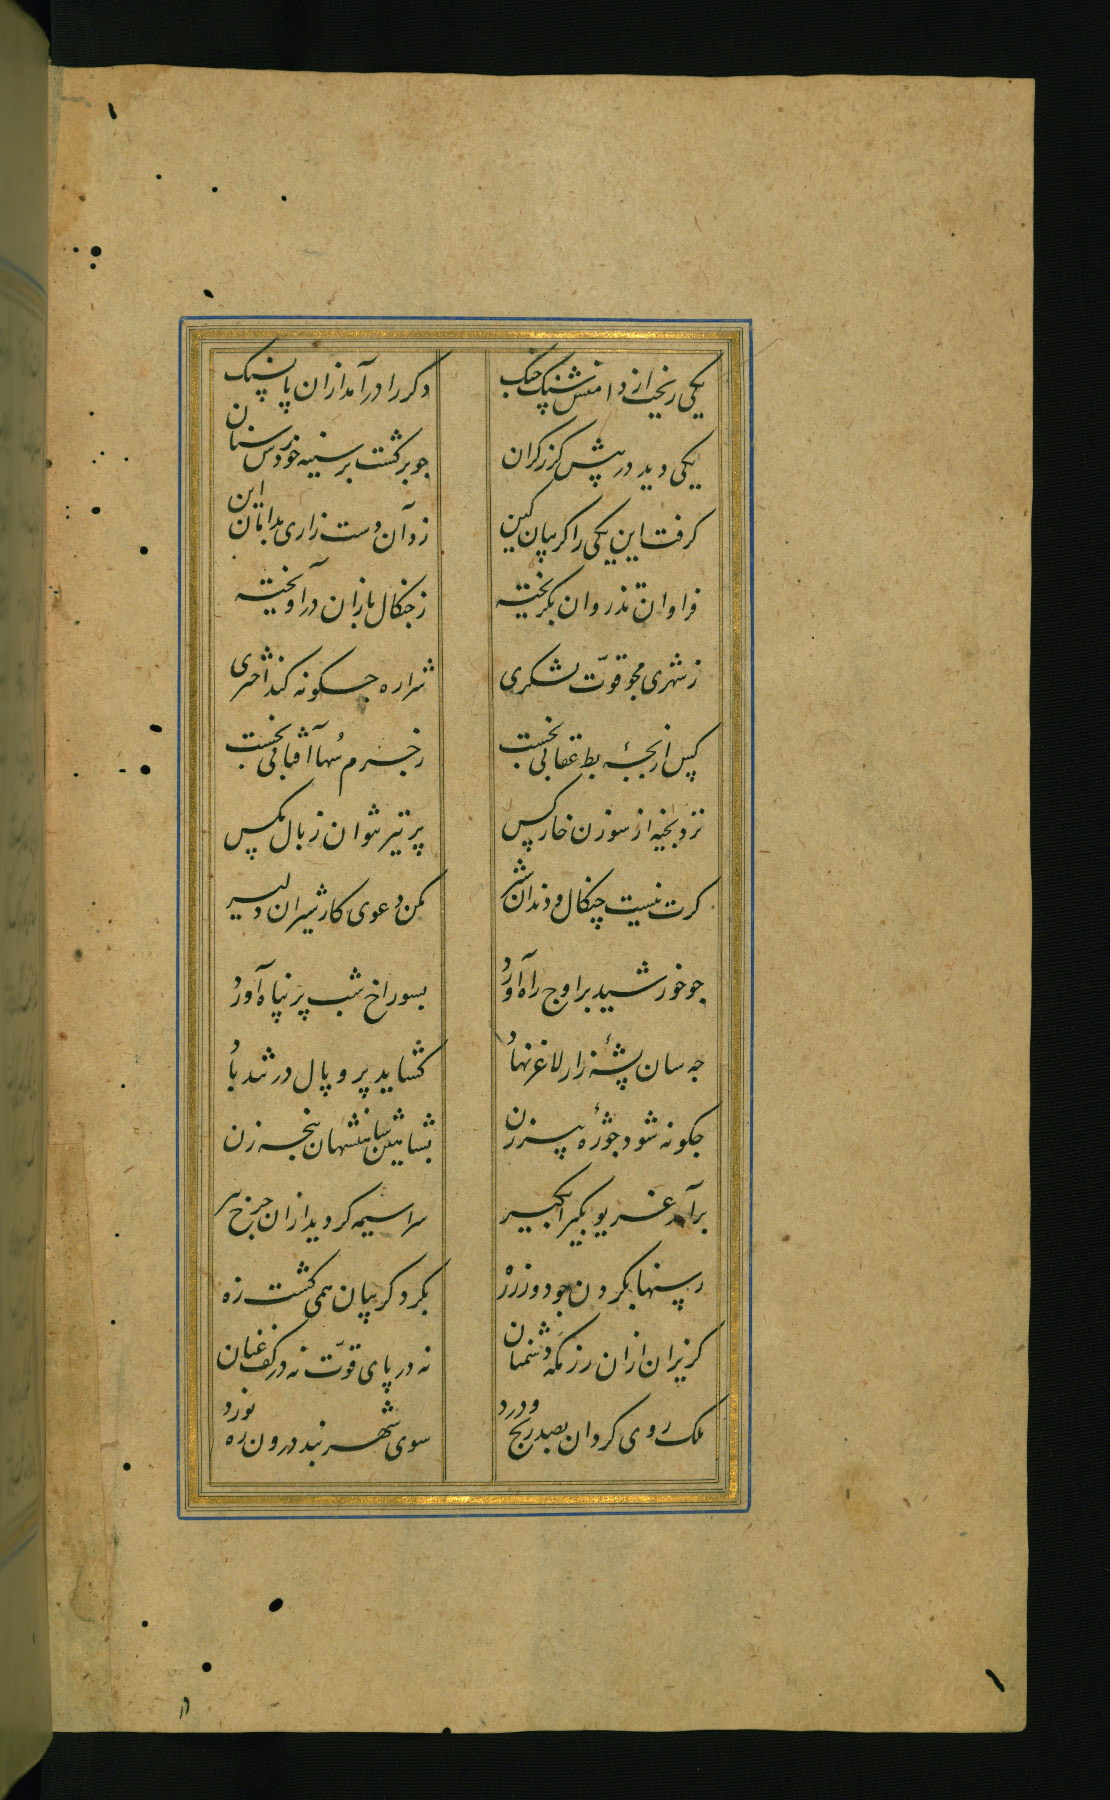 یکی ریخت از دامنش سنک جنک
دکر را درآمد ازان پا بسنک
یکی دید در پیش کرز کران
جو برکشت بر سینه خودش سنان
کرفت این یکی را کریبان کین
زد آن دست زاری بدامان این
فراوان تذروان بکریخته
ز جنکال بازان درآویخته
ز شهری مجو قوّت لشکری
شراره جکونه کند اخترى
پس از بجۀ بط عقابی نخست
ز جرم سُها آفتابی نخست
نزد بخیه از سوزن خار کس
پر تیر نتوان ز بال مکس
کرت نیست چنکال و دندان شیر
مکن دعوی کار شیران دلیر
جو خورشید بر اوج راه آورد
بسوراخ شب پر پناه آورد
جه سان پشۀ زار لاغر نهاد
کشاید پر و بال در تند باد
جکونه شود جوزۀ پیر زن
بشاهین شاهنشهان پنجه زن
برآمد غریو بکیرا بکیر
سراسیمه کردید ازان جرخ پیر
رسنها بکردن جو دوزرزه
بکرد کریبان همی کشت زه
کریزان ازان رزمکه دشمنان
نه در پای قوّت نه در کف عنان
ملک روی کردان بصد رنج و درد
سوی شهر بند درون ره نورد